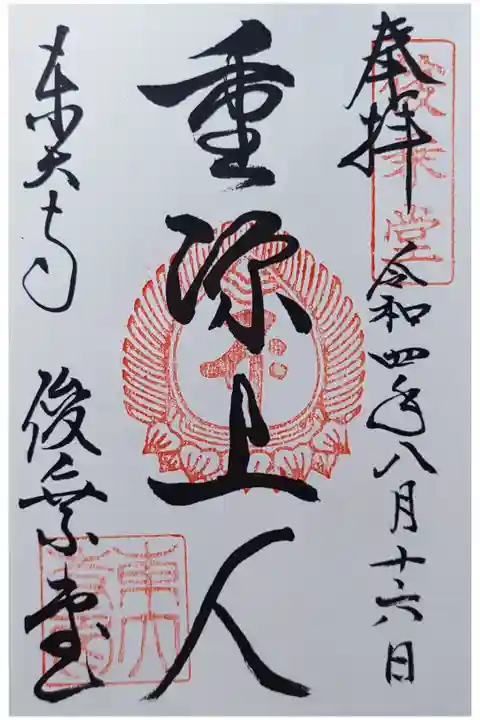 奉拝 令和四年八月十六日
俊乗堂
重源上人
東大寺 俊乗堂